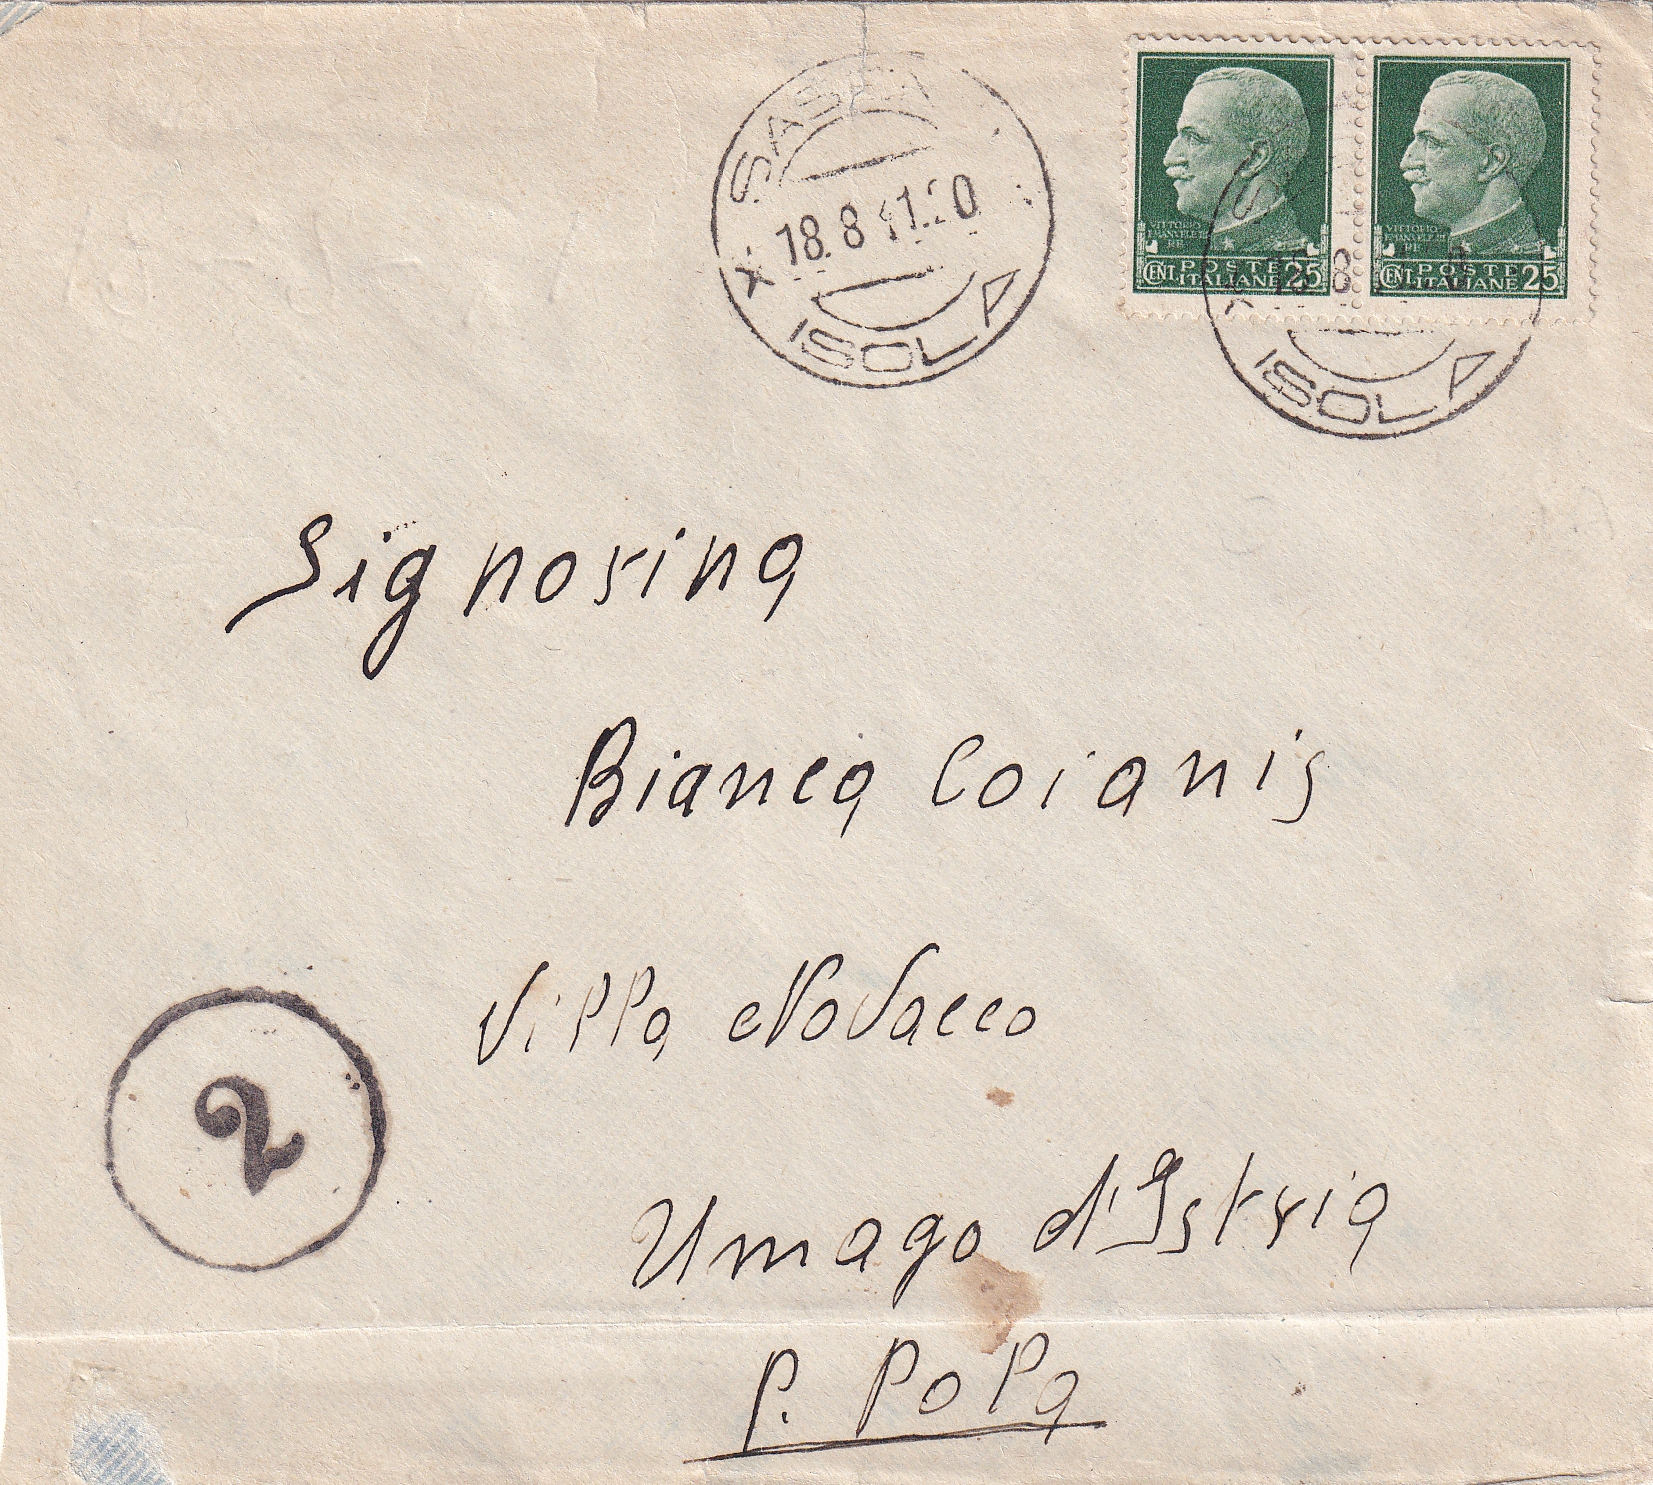 18.8 41.20
ISOLA
VITTORIO
EMANUELE III
RE
CENT POSTE ITALIANE 25
VITTORIO
EMANUELE III
RE
CENT POSTE ITALIANE 25
ISOLA
Signorina
Bianca Coianis
Villa Novacco
2
Umago d'Istria
P. Pola